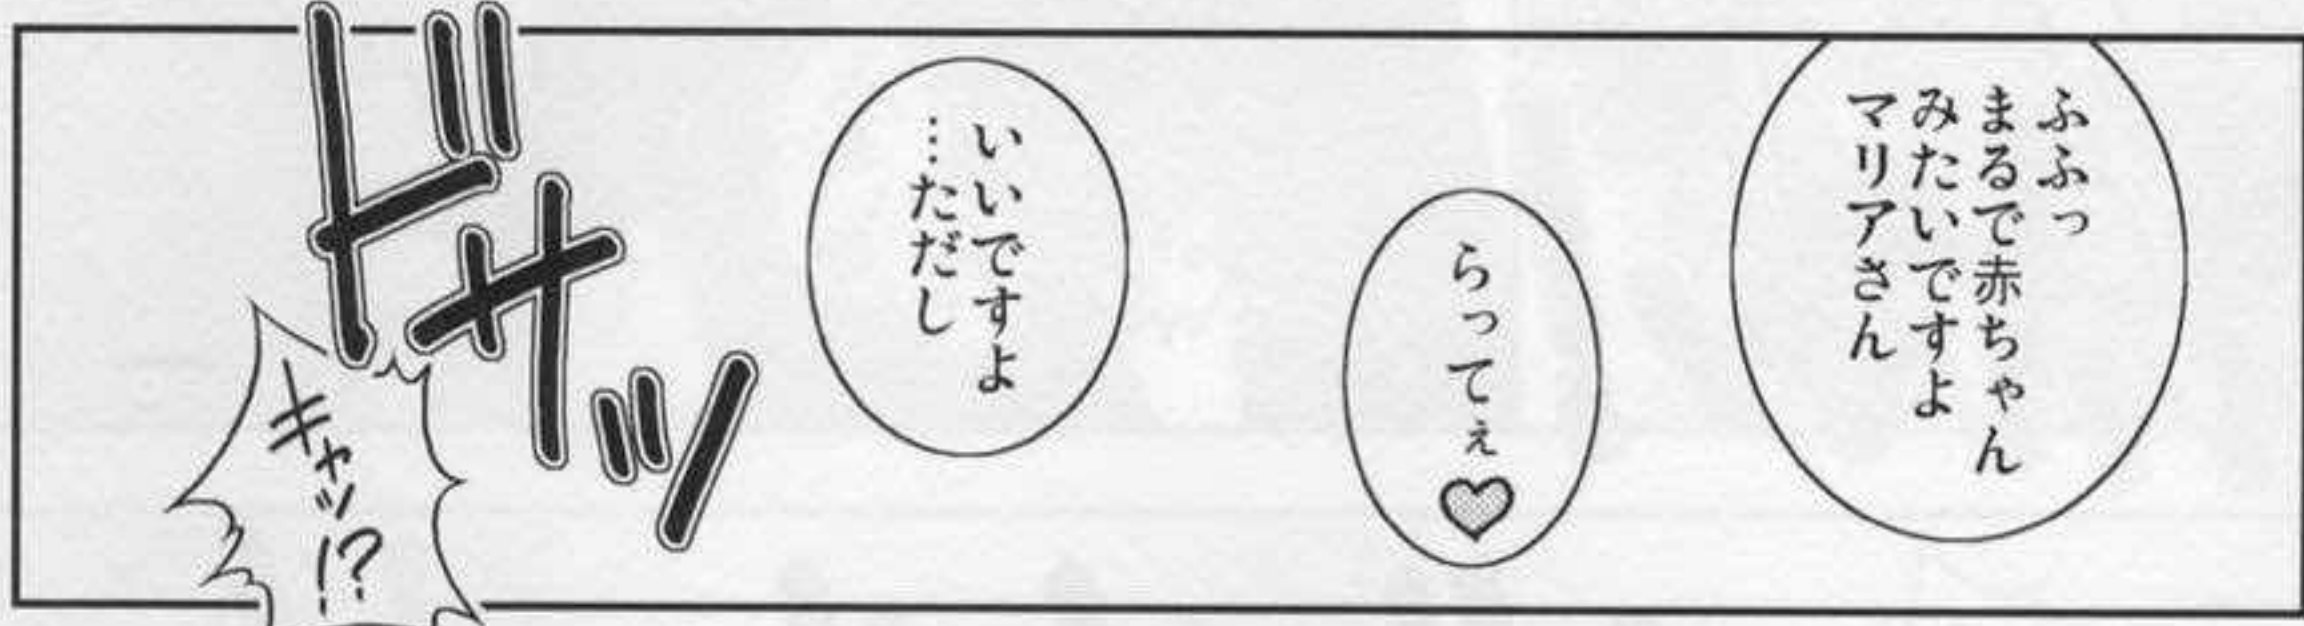 ふふっ
まるで赤ちゃん
みたいですよ
マリアさん
らってぇ♡
いいですよ
…ただし
ドサッ
キャッ!?